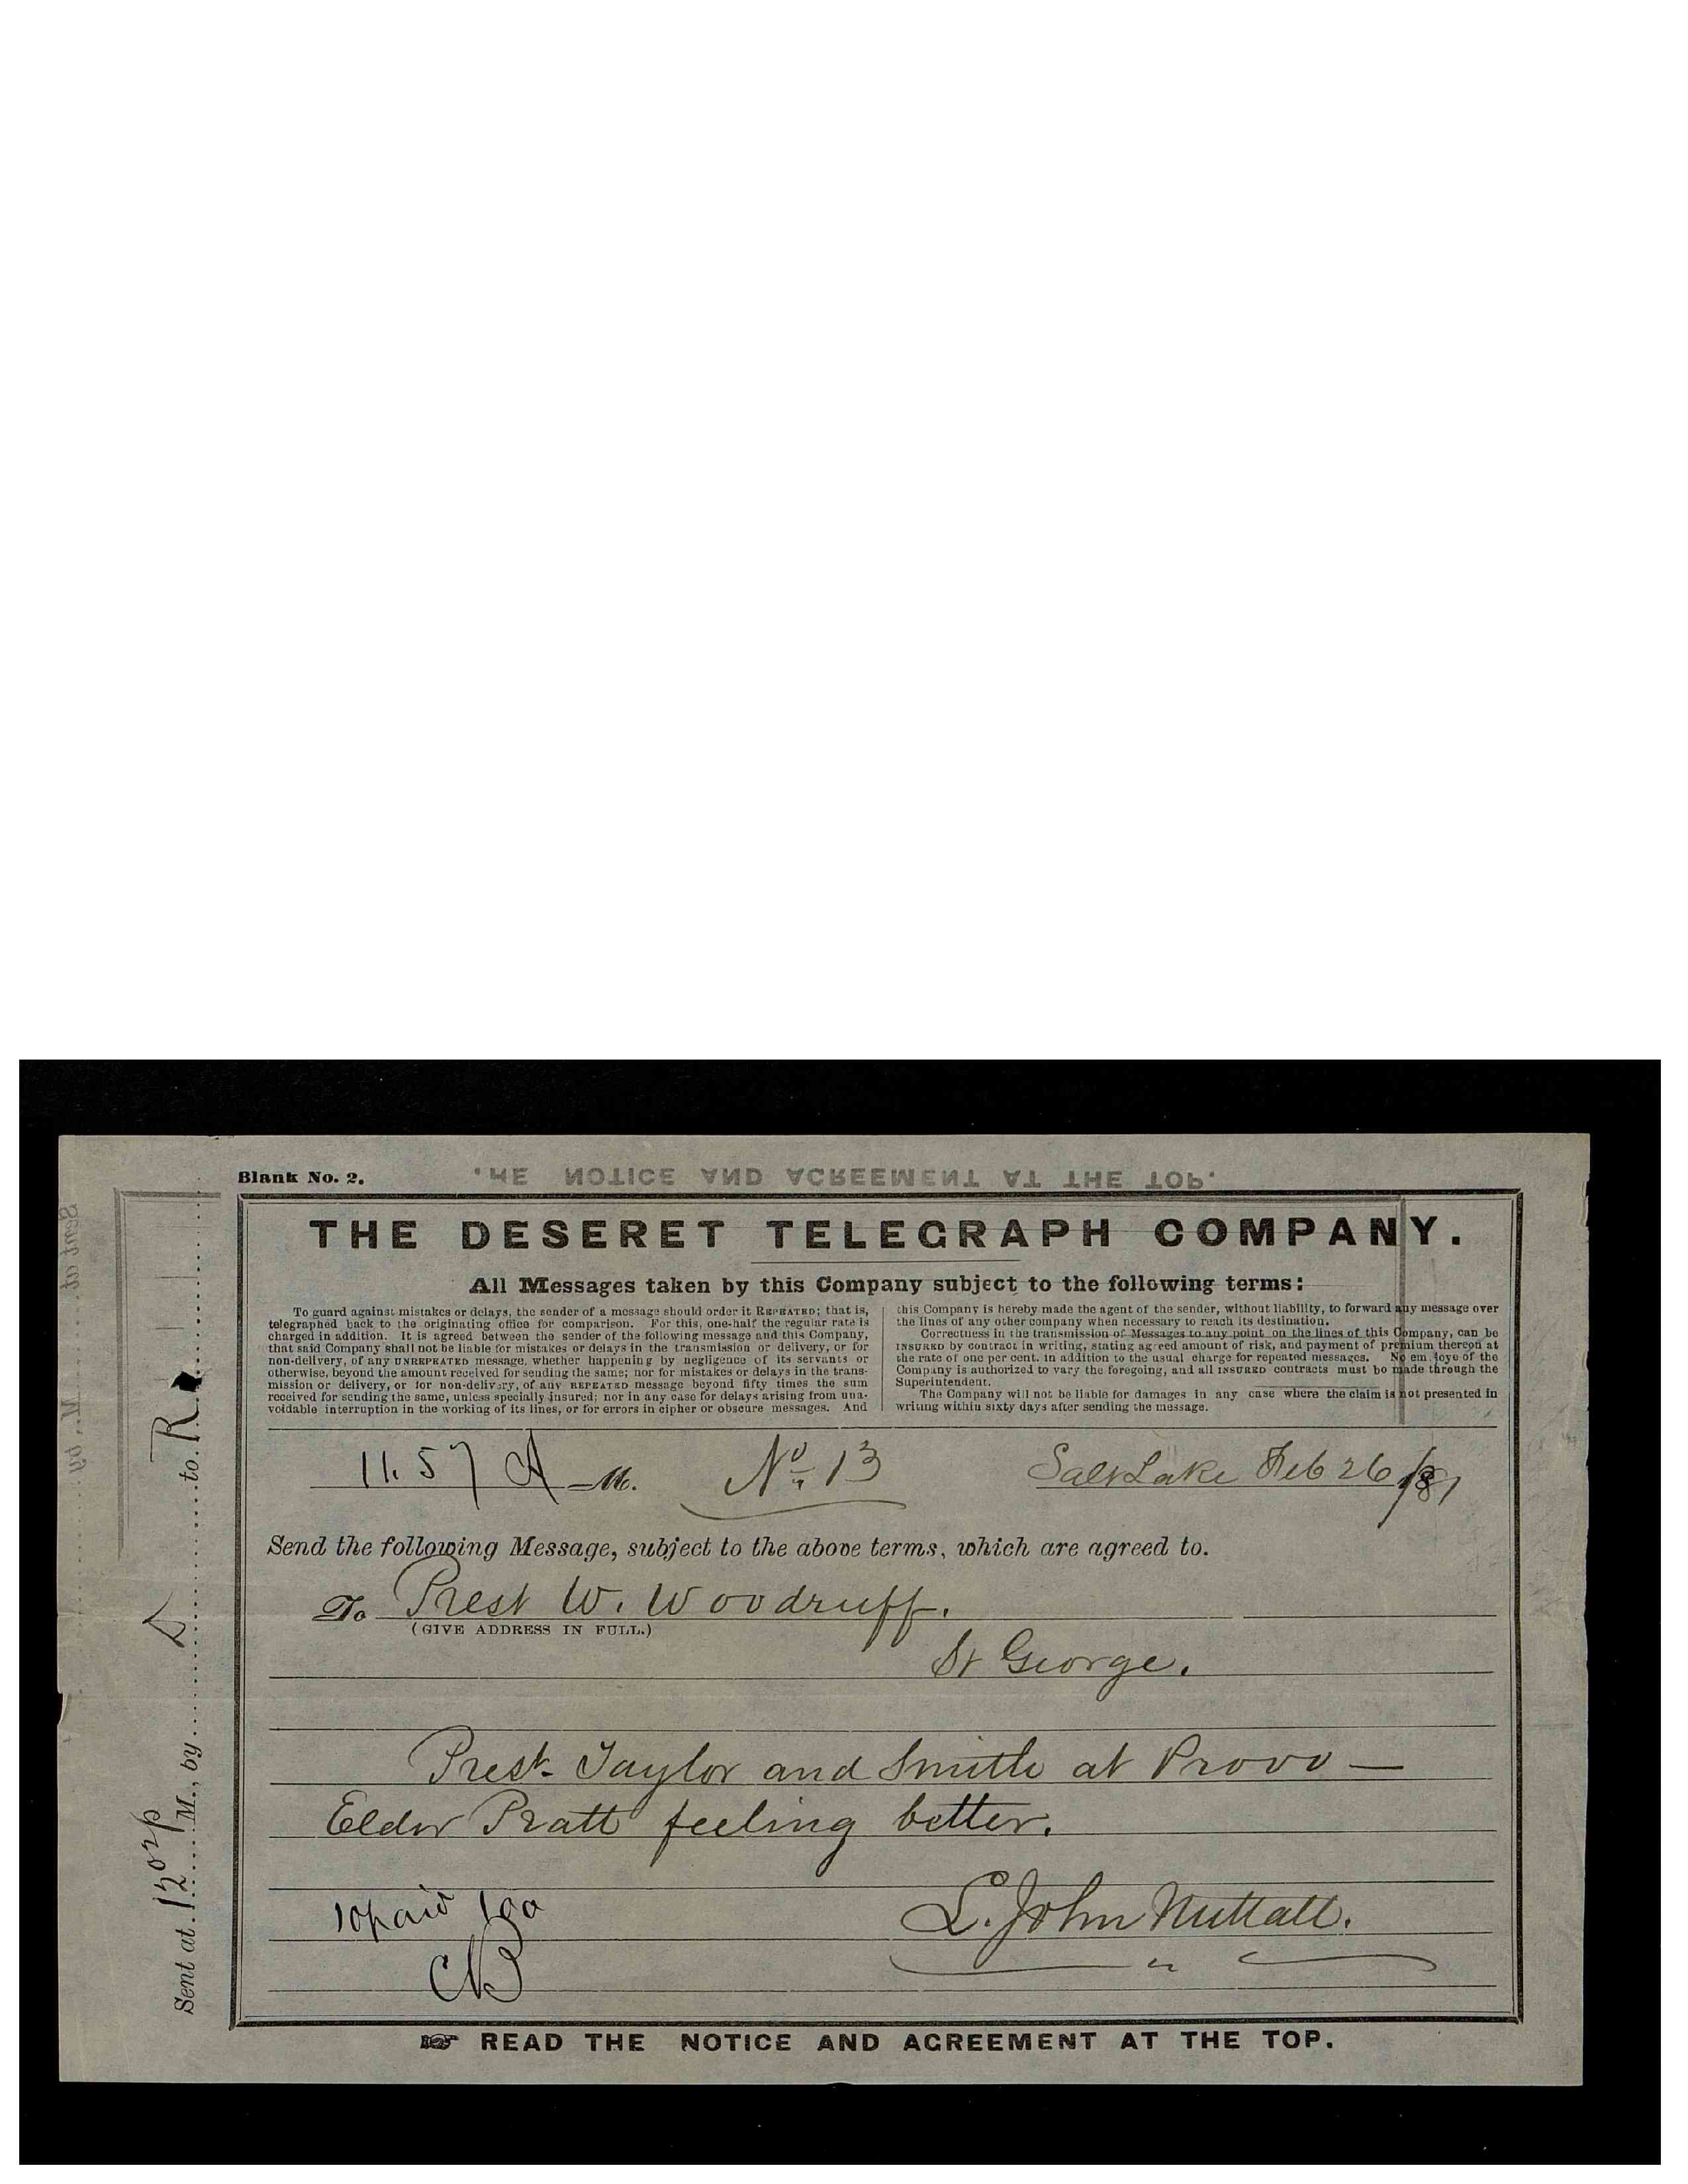 Blank No. 2.
THE DESERET TELEGRAPH COMPANY.
All Messages taken by this Company subject to the following terms:
To guard against mistakes or delays, the sender of a message should order it REPEATED; that is,
telegraphed back to the originating office for comparison. For this, one-half the regular rate is
charged in addition. It is agreed between the sender of the following message and this Company,
that said Company shall not be liable for mistakes or delays in the transmission or delivery, or for
non-delivery, of any UNREPEATED message, whether happening by negligence of its servants or
otherwise, beyond the amount received for sending the same; nor for mistakes or delays in the trans-
mission or delivery, or for non-delivery, of any REPEATED message beyond fifty times the sum
received for sending the same, unless specially insured; nor in any case for delays arising from una-
voidable interruption in the working of its lines, or for errors in cipher or obscure messages. And
this Company is hereby made the agent of the sender, without liability, to forward any message over
the lines of any other company when necessary to reach its destination.
Correctness in the transmission of Messages to any point on the lines of this Company, can be
INSURED by contract in writing, stating agreed amount of risk, and payment of premium thereon at
the rate of one per cent. in addition to the usual charge for repeated messages. No employe of the
Company is authorized to vary the foregoing, and all INSURED contracts must be made through the
Superintendent.
The Company will not be liable for damages in any case where the claim is not presented in
writing within sixty days after sending the message.
11.57 A M. No 13 Salt Lake Feb 26/81
Send the following Message, subject to the above terms, which are agreed to.
To Prest W. Woodruff.
(GIVE ADDRESS IN FULL.)
St George.
Prest Taylor and Smith at Provo —
Elder Pratt feeling better.
10 paid 100
L. John Nuttall.
READ THE NOTICE AND AGREEMENT AT THE TOP.
Sent at 12 02 p M., by to R